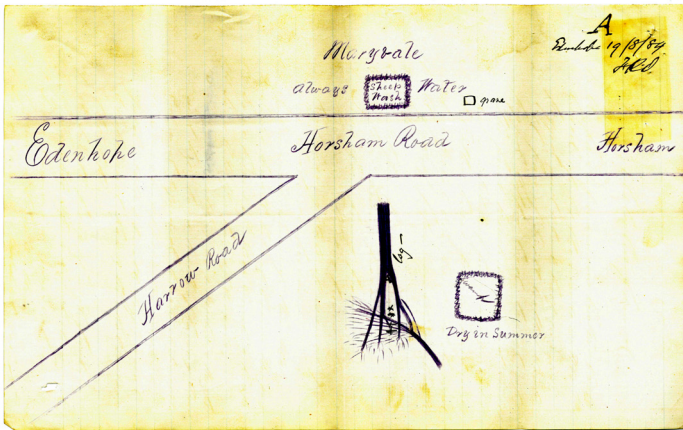 A
19/8/89
Maryvale
always Sheep Wash Water
grave
Edenhope Horsham Road Horsham
Harrow Road
log
Dry in Summer